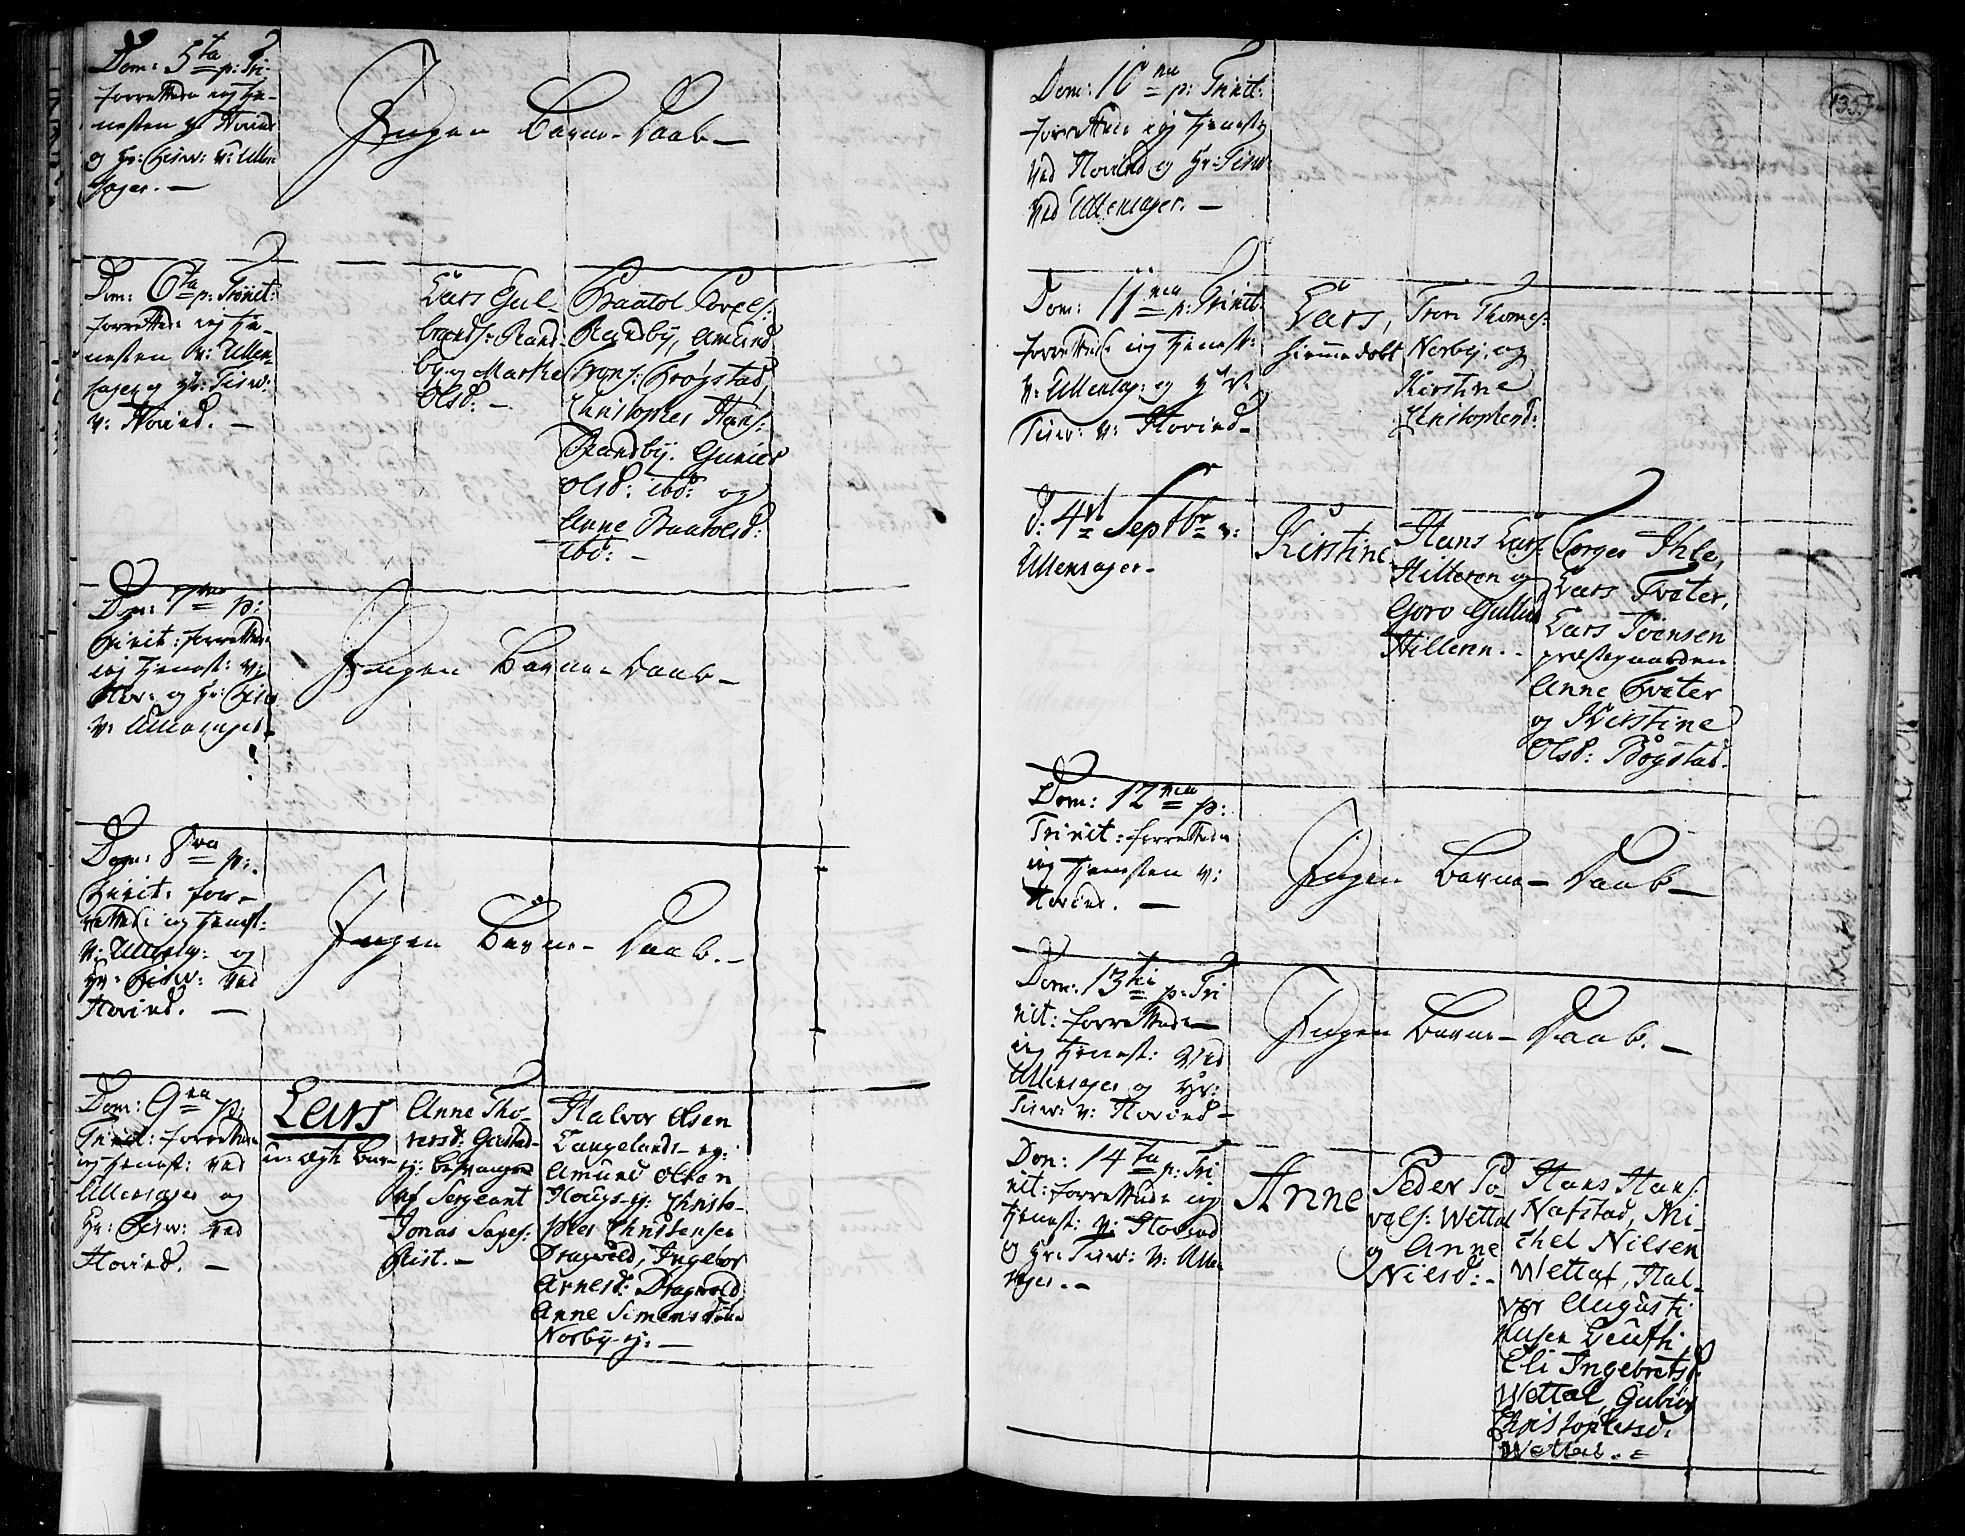 Dom: 5ta p: Tri-
forrettede ieg Tie-
nesten v: Hovind
og Hr: Tisw: v: Ullen
Sager. —
Ingen Barne-Daab —
Dom: 6ta p: Trinit:
forrettede ieg Tie-
nesten v: Ullen-
sager og Hr: Tisw:
v: Hovind. —
Lars Gul-
brands: Rand-
by og Marthe
Olsd: —
Baatol
Randby, Amund
Frogstad,
Christopher Hans:
Randby. Gunild
Olsd: ibd: og
Anne Baatolsd:
ibd: —
Dom: 7ma p:
Trinit: forrettede
ieg Tienest: v:
Hov: og Hr: Tisw
v: Ullensager —
Ingen Barne-Daab —
Dom: 8va p:
Trinit: for-
rettede ieg Tienest:
v: Ullensag: og
Hr: Tisw: ved
Hovind. —
Ingen Barne-Daab. —
Dom: 9na p:
Trinit: forrettede
ieg Tienest: ved
Ullensager og
Hr: Tisw: ved
Hovind. —
Lars
u: ægte Barn
Anne Tho-
rersd:
ej: besvangred
af Sergeant
Jonas
Qvist. —
Halvor Olsen
Langelands- ej:
Amund Olsen
Hougs- ej: Christo-
pher Christensen
Dragvold, Ingebor
Arnesd: Dragvold,
Anne Simensdatter
Norby- ej: —
135.
Dom: 10ma p: Trinit:
forrettede ieg Tieneste
ved Hovind og Hr: Tisw:
ved Ullensager. —
Dom: 11ma p: Trinit:
forrettede ieg Tienest:
v: Ullensag: og Hr
Tisw: v: Hovind —
Lars,
hiemmedøbt
Tron Thomes:
Norby, og
Kirstine
Christophersd:
d: 4de Septbr v:
Ullensager —
Kirstine
Hans Lars:
Hilleren og
Goro Gullid
Hilleren. -
Torger Ihle,
Lars Tveter,
Lars Svensen
præstegaarden
Anne Tveter
og Kirstine
Olsd: Bögstad. -
Dom: 12ma p:
Trinit: forrettede
ieg Tienesten v:
Hovind. —
Ingen Barne-Daab —
Dom: 13tia p: Tri
nit: forrettede —
ieg Tienest: ved
Ullensager og Hr:
Tisw: v: Hovind —
Ingen Barne-Daab. —
Dom: 14ta p: Tri-
nit: forrettede ieg
Tienest: v: Hovind
og Hr: Tisw: v: Ullen
sager. —
Anne
Peder Po-
vels: Wettal
og Anne
Nielsd: -
Hans Hans:
Nafstad, Mi-
chel Nielsen
Wettal, Hal-
vor Augusti-
nusen
Eli Ingebretsd:
Wettal, Gubiør
Christophersd:
Wettal. =